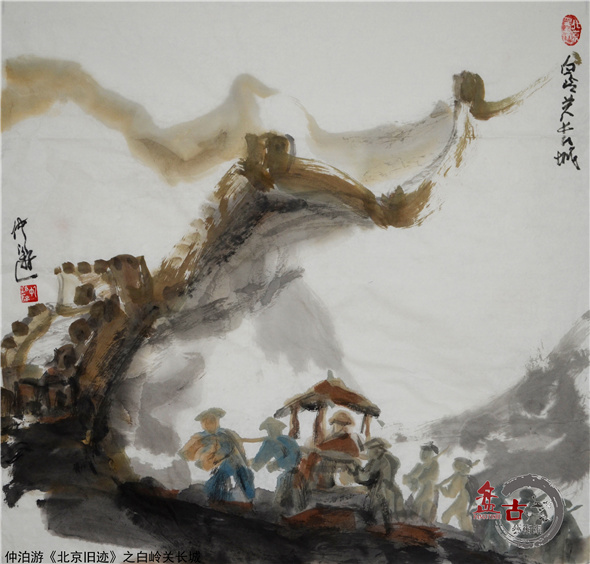 白岭关长城
盘古
仲泊游《北京旧迹》之白岭关长城